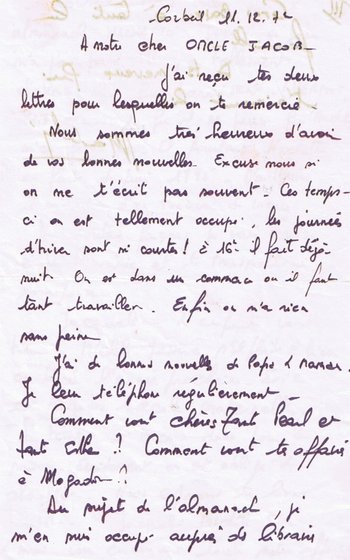 Corbeil 11.12.72
A notre cher ONCLE JACOB-
J'ai reçu tes deux
lettres pour lesquelles on te remercie
Nous sommes très heureux d'avoir
de vos bonnes nouvelles. Excuse nous si
on ne t'écrit pas souvent. Ces temps-
ci on est tellement occupé, les journées
d'hiver sont si courtes! à 16h il fait déjà
nuit. On est dans un commerce ou il faut
tant travailler. Enfin on n'a rien
sans peine
J'ai de bonnes nouvelles de Papa & maman.
Je leur téléphone régulièrement-
Comment vont chères Tant Perl et
tant ?? Comment vont tes affaires
à Mogador?
Au sujet de l'almanach, je
m'en suis occupé auprès de libraire